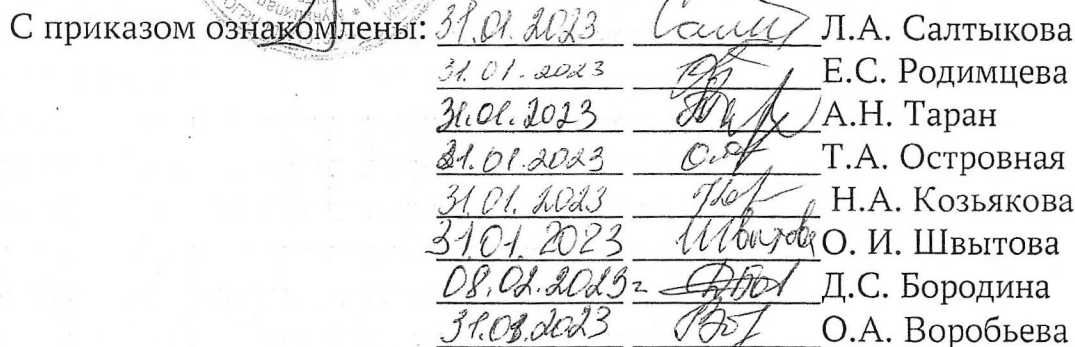 С приказом ознакомлены: 31.01.2023 Л.А. Салтыкова
31.01.2023 Е.С. Родимцева
31.01.2023 А.Н. Таран
31.01.2023 Т.А. Островная
31.01.2023 Н.А. Козьякова
31.01.2023 Швытова О. И. Швытова
08.02.2023г Д.С. Бородина
31.01.2023 О.А. Воробьева